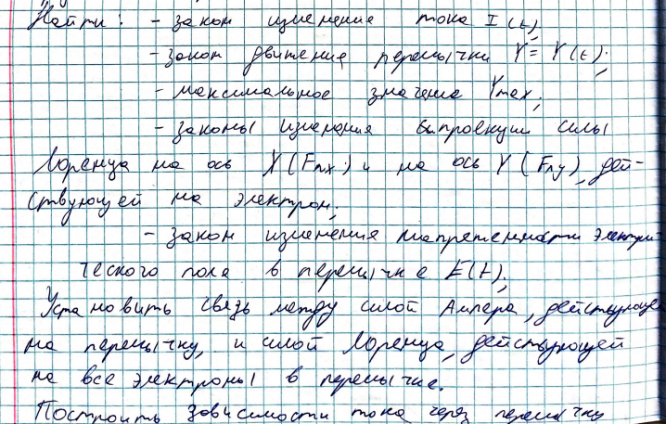 Найти: - закон изменение тока I(t),
- закон движение перемычки Y = Y(t);
- максимальное значение Ymax;
- законы изменения проекции силы
Лоренца на ось X (Fлx) и на ось Y (Fлy), дей-
ствующей на электрон;
- закон изменения напреженности электри-
ческого поля в перемычке E(t);
Установить связь между силой Ампера, действующей
на перемычку, и силой Лоренца, действующей
на все электроны в перемычке.
Построить зависимости тока через перемычку